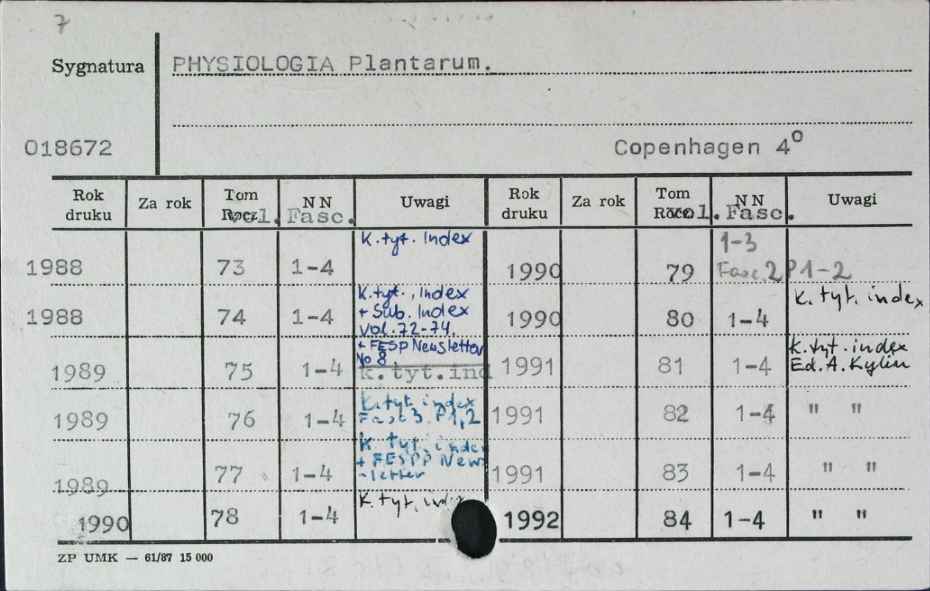 7
Sygnatura
PHYSIOLOGIA Plantarum.
018672
Copenhagen 4º
Rok druku Za rok Tom Rocz. vol. NN Fasc. Uwagi Rok druku Za rok Tom Rocz. vol. NN Fasc. Uwagi
1988 73 1-4 K.tyt. Index
1990 79 1-3 Fasc.2 P1-2
1988 74 1-4 K.tyt., Index
+ Sub. Index
vol. 72-74.
+ FESP Newsletter
No 8
1990 80 1-4 K. tyt. index
1989 75 1-4 k.tyt.ind
1991 81 1-4 K.tyt.index
Ed. A. Kylin
1989 76 1-4 K.tyt. index
Fasc 3 P1,2
1991 82 1-4 " "
1989 77 1-4 K. tyt. index
+ FESPP News
-letter
1991 83 1-4 " "
1990 78 1-4 K.tyt. index
1992 84 1-4 " "
ZP UMK — 61/87 15 000